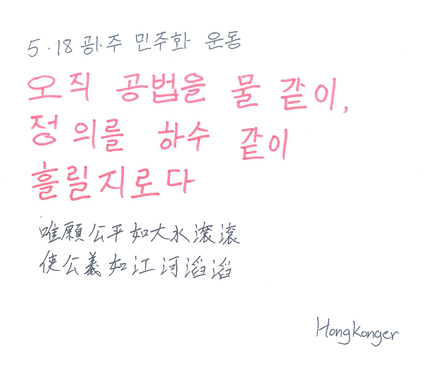 5·18 광주 민주화 운동
오직 공법을 물 같이,
정의를 하수 같이
흘릴지로다
唯願公平如大水滾滾
使公義如江河滔滔
Hongkonger